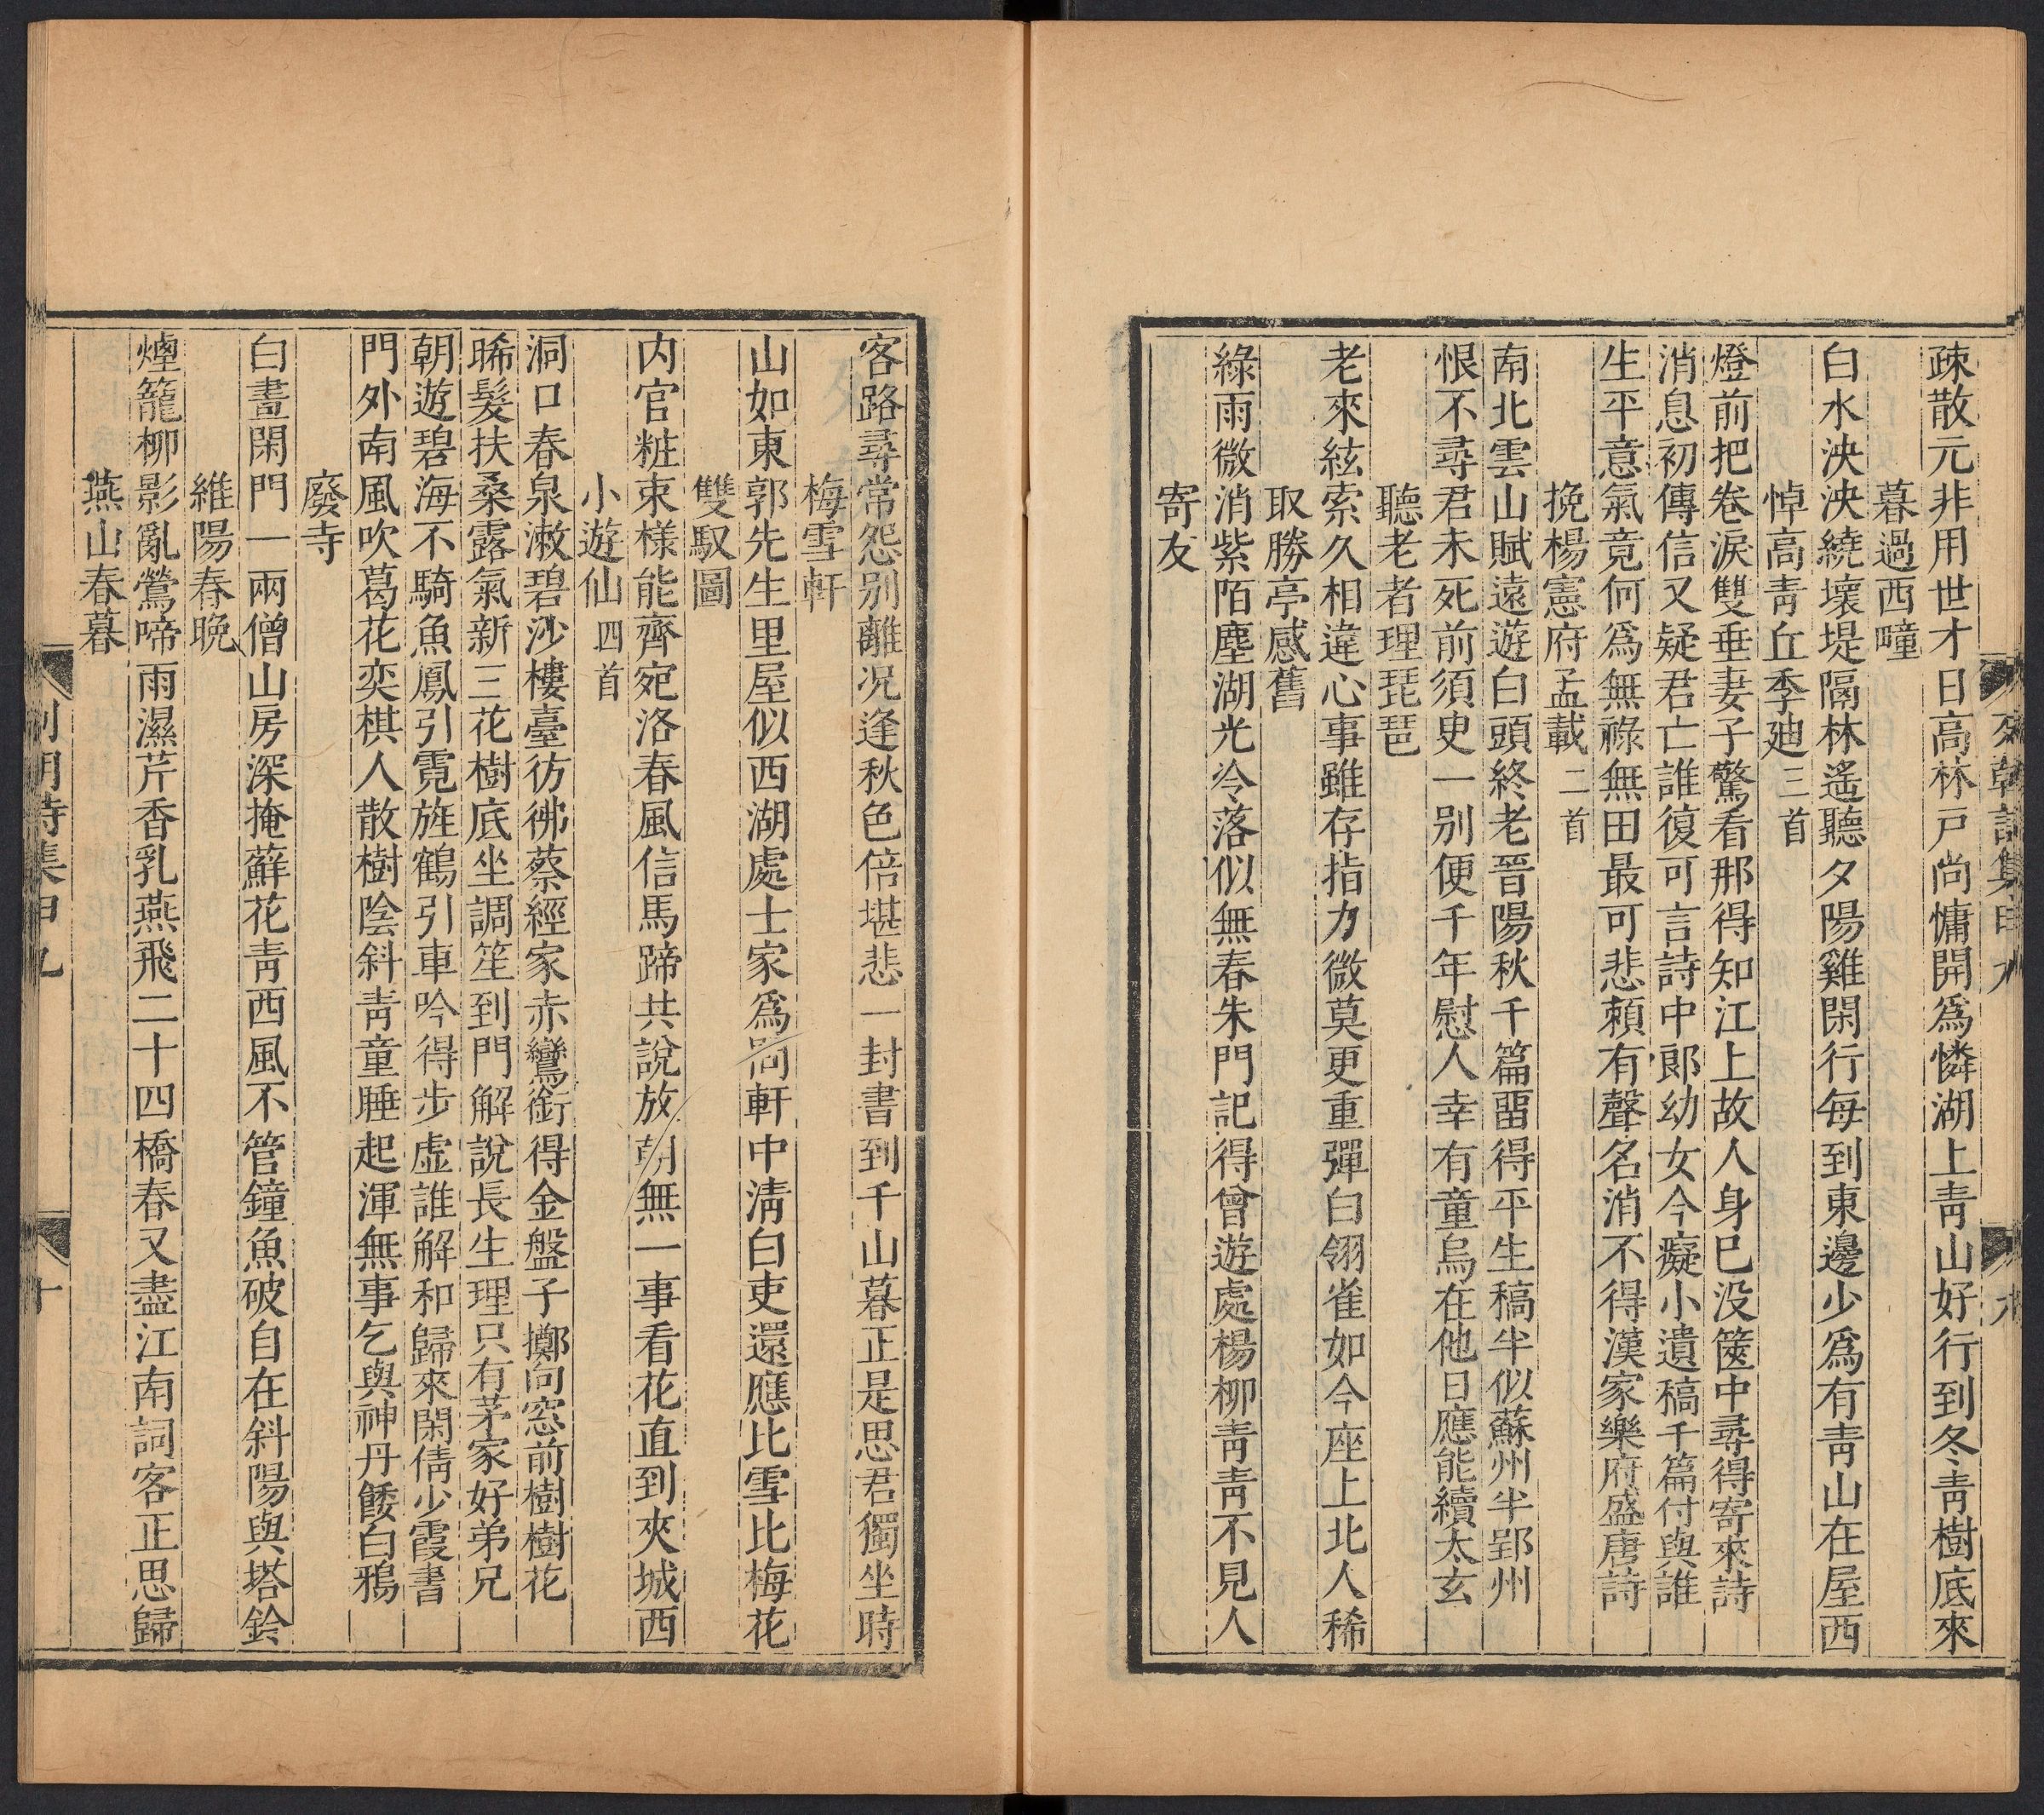 疎散元非用世才日高林戸尚慵開爲憐湖上青山好行到冬青樹底來
暮過西疃
白水泱泱繞壞堤隔林遙聽夕陽雞閑行每到東邊少爲有青山在屋西
悼高青丘季廸三首
燈前把卷淚雙垂妻子驚看那得知江上故人身已没篋中尋得寄來詩
消息初傳信又疑君亡誰復可言詩中郞幼女今癡小遺稿千篇付與誰
生平意氣竟何爲無祿無田最可悲賴有聲名消不得漢家樂府盛唐詩
挽楊憲府孟載二首
南北雲山賦遠遊白頭終老晉陽秋千篇畱得平生稿半似蘇州半郢州
恨不尋君未死前須臾一别便千年慰人幸有童烏在他日應能續太玄
聽老者理琵琶
老來絃索久相違心事雖存指力微莫更重彈白翎雀如今座上北人稀
取勝亭感舊
綠雨微消紫陌塵湖光冷落似無春朱門記得曾遊處楊柳青青不見人
寄友
客路尋常怨别離况逢秋色倍堪悲一封書到千山暮正是思君獨坐時
梅雪軒
山如東郭先生里屋似西湖處士家爲問軒中淸白吏還應比雪比梅花
雙馭圖
内官粧束様能齊宛洛春風信馬蹄共說放朝無一事看花直到夾城西
小遊仙四首
洞口春泉漱碧沙樓臺彷彿蔡經家赤鸞銜得金盤子擲向窓前樹樹花
晞髮扶桑露氣新三花樹底坐調笙到門解說長生理只有茅家好弟兄
朝遊碧海不騎魚鳳引霓旌鶴引車吟得步虚誰解和歸來閑倩少霞書
門外南風吹葛花奕棋人散樹陰斜青童睡起渾無事乞與神丹餧白鴉
廢寺
白晝閑門一兩僧山房深掩蘚花青西風不管鐘魚破自在斜陽與塔鈴
維陽春晚
煙籠柳影亂鶯啼雨濕芹香乳燕飛二十四橋春又盡江南詞客正思歸
燕山春暮
列朝詩集甲九
十